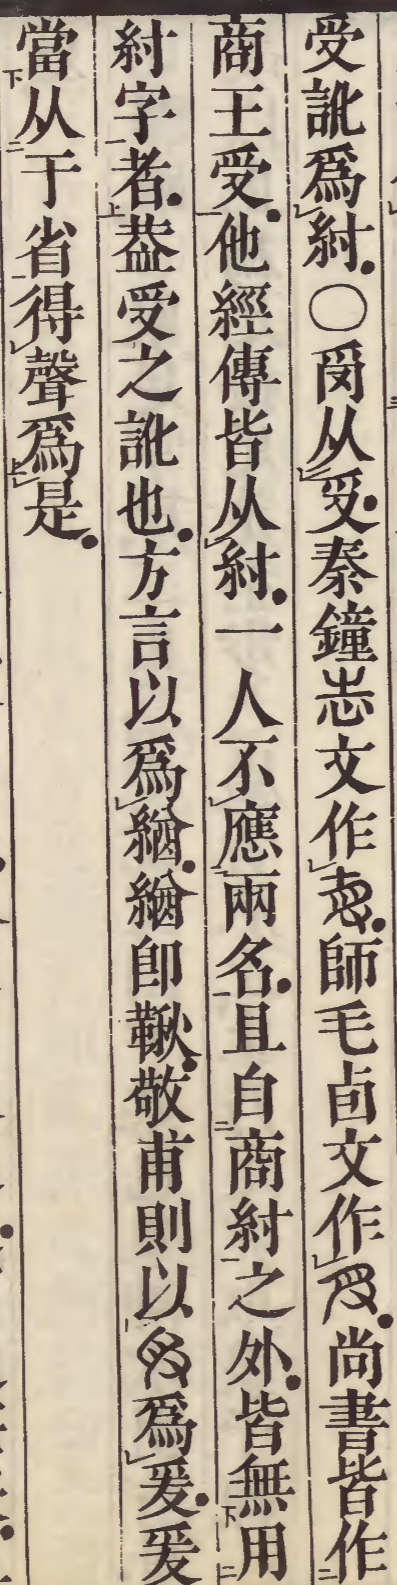 受訛爲紂。〇从𠬪。秦鐘志文作。師毛卣文作。尚書皆作
商王受。他經傳皆从紂。一人不應兩名。且自商紂之外。皆無用
紂字者。葢受之訛也。方言以爲緧。緧即鞦。敬甫則以爲爰。爰
當从干省得聲爲是。